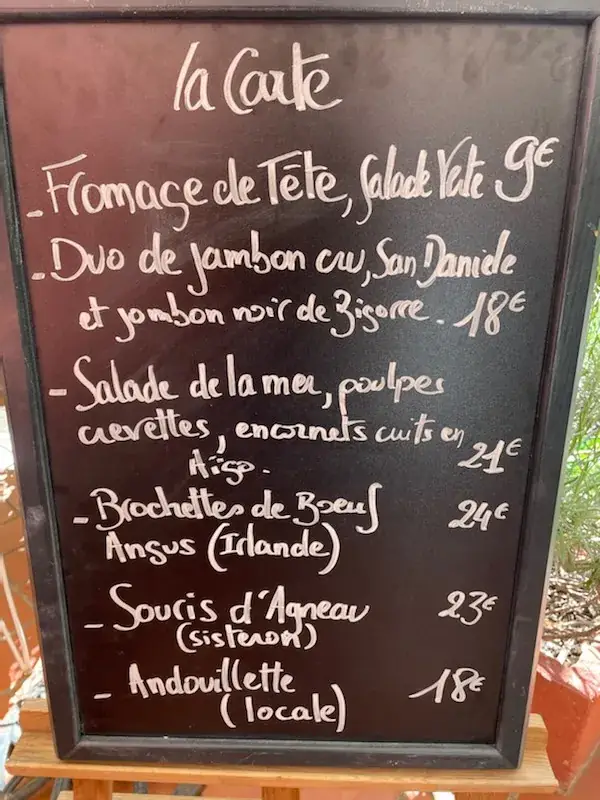 la Carte
- Fromage de Tête, Salade Verte 9€
- Duo de jambon cru, San Daniele
et jambon noir de Bigorre. 18€
- Salade de la mer, poulpes
crevettes, encornets cuits en
Aïgo. 21€
- Brochettes de Boeuf 24€
Angus (Irlande)
- Souris d'Agneau 23€
(sisteron)
- Andouillette 18€
(locale)